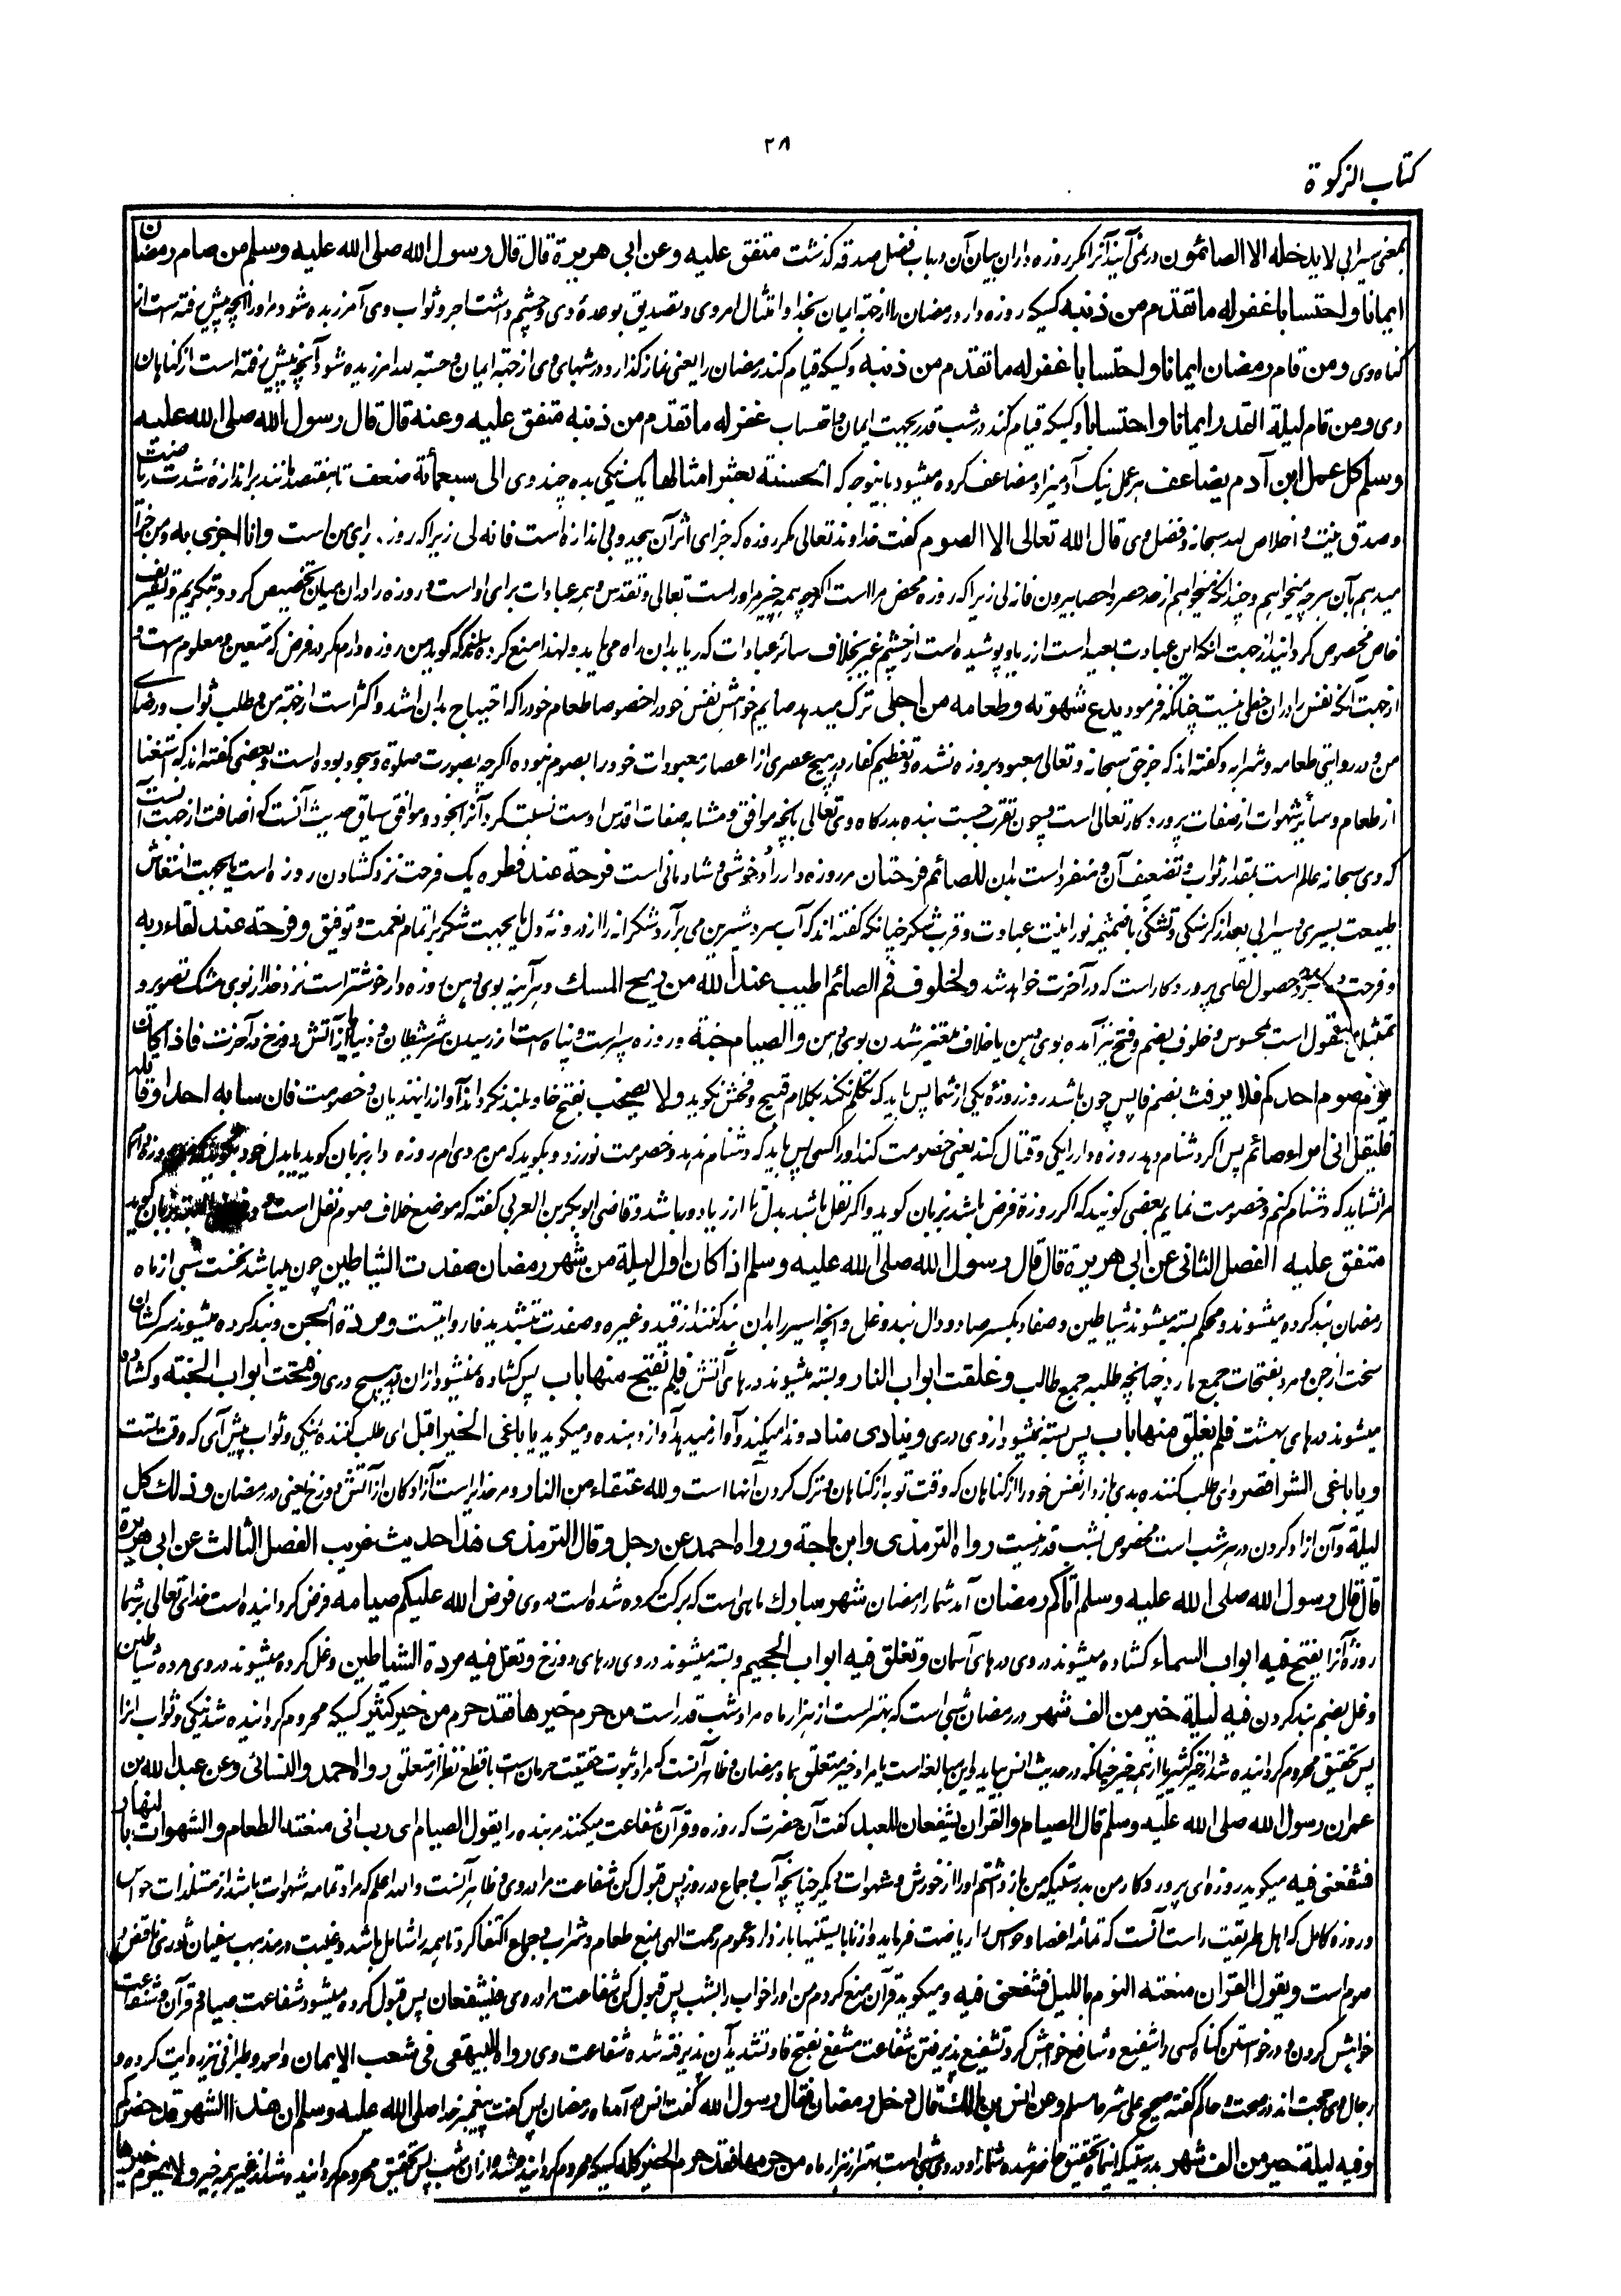 ۲۸
کتاب الزکوة
بمعنی سیرابی لا یدخله الا الصائمون در نمی آیند آنرا مگر روزه داران بیان آن در باب فضل صدقه گذشت متفق علیه وعن ابی هریرة قال قال رسول الله صلی الله علیه وسلم من صام رمضان
ایمانا واحتسابا غفر له ما تقدم من ذنبه کسیکه روزه دارد رمضان را از جهة ایمان بخدا و امتثال امر وی و تصدیق بوعدۀ وی و چشم داشت اجر و ثواب وی آمرزیده شود مر اورا آنچه پیش رفته است از
گناه وی ومن قام رمضان ایمانا واحتسابا غفر له ما تقدم من ذنبه و کسیکه قیام کند رمضان را یعنی نماز گذارد در شبهای وی از جهة ایمان و حسبة لله امرزیده شود آنچه پیش رفته است از گناهان
وی ومن قام لیلة القدر ایمانا واحتسابا و کسیکه قیام کند در شب قدر بجهت ایمان و احتساب غفر له ما تقدم من ذنبه متفق علیه وعنه قال قال رسول الله صلی الله علیه
وسلم کل عمل ابن آدم یضاعف هر عمل نیک آدمیزاد مضاعف کرده میشود باینوجه که الحسنة بعشر امثالها یک نیکی بده چند وی الی سبعمأئة ضعف تا بهفتصد مانند بر اندازۀ شدت ریاضت
و صدق نیت و اخلاص لله سبحانه و فضل وی قال الله تعالی الا الصوم گفت خداوند تعالی مگر روزه که جزای اثر آن بیحد و بی اندازه است فانه لی زیرا که روزه برای من است وانا اجزی به و من جزا
میدهم بآن هر چه میخواهم و چندانکه میخواهم از حد حصر و احصا بیرون فانه لی زیرا که روزه محض مرا است اگرچه همه چیز مر اوراست تعالی و تقدس و همه عبادات برای او است و روزه را از ان میان تخصیص کرد و بتکریم و تشریف
خاص مخصوص گردانید از جهت انکه این عبادت بعید است از ریا و پوشیده است از چشم غیر بخلاف سائر عبادات که ریا بدان راه می یابد و لهذا منع کرده
از جهت آنکه نفس را در ان حظی نیست چنانکه فرمود یدع شهوته وطعامه من اجلی ترک میدهد صایم خواهش نفس خود را خصوصا طعام خود را که احتیاج بدان اشد و اکثر است از جهة من و طلب ثواب و رضای
من و در روایتی طعامه و شرابه و گفته اند که جز حق سبحانه و تعالی معبود بروزه نشده و تعظیم کفار در هیچ عصری از اعصار معبودات خود را بصوم نبوده اگرچه بصورت صلوة و سجود بوده است و بعضی گفته اند که استغنا
از طعام و سائر شهوات از صفات پروردگار تعالی است و چون تقرب جست بنده بدرگاه وی تعالی بآنچه موافق و مشابه صفات اقدس اوست نسبت کرد آنرا بخود و موافق سیاق حدیث آنست که اضافت از جهت آنست
که وی سبحانه عالم است بمقدار ثواب و تضعیف آن و منفرد است بدان للصائم فرحتان مر روزه دار را دو خوشی و شادمانی است فرحة عند فطره یک فرحت نزد کشادن روزه است یا بجهت انتعاش
طبیعت بسیری و سیرابی بعد از گرسنگی و تشنگی با ضمیمه نورانیت عبادت و قرب شکر چنانکه گفته اند که آب سرد شیرین می برآرد شکرانه را از درونۀ دل یا بجهت شکر بر اتمام نعمت و توفیق وفرحة عند لقاء ربه
و فرحت نزد حصول لقای پروردگار است که در آخرت خواهد شد ولخلوف فم الصائم اطیب عند الله من ریح المسك و هر آینه بوی دهن روزه دار خوشتر است نزد خدا از بوی مشک تصویر و
تمثیل معقول است بمحسوس و خلوف بضم و فتح نیز آمده بوی دهن یا خلاف متغیر شدن بوی دهن والصیام جنة و روزه سپر است و پناه است از رسیدن شر شیطان در دنیا و از آتش دوزخ در آخرت فاذا کان
یوم صوم احدکم فلا یرفث بضم فا پس چون باشد روز روزۀ یکی از شما پس باید که تکلم نکند بکلام قبیح و فحش نگوید ولا یصخب بفتح خا و بلند نگرداند آواز را بهذیان و خصومت فان سابه احد او قاتله
فلیقل انی امرؤ صائم پس اگر دشنام دهد روزه دار را یکی و قتال کند یعنی خصومت کند اورا کسی پس باید که دشنام ندهد و خصومت نورزد و بگوید که من مردی ام روزه دار بزبان گوید یا بدل خود
مرا نشاید که دشنام کنم و خصومت نمایم بعضی گویند که اگر روزۀ فرض باشد بزبان گوید و اگر نفل باشد بدل تا از ریا دور باشد و قاضی ابوبکر بن العربی گفته که موضع خلاف صوم نفل است
متفق علیه الفصل الثانی عن ابی هریرة قال قال رسول الله صلی الله علیه وسلم اذا کان اول لیلة من شهر رمضان صفدت الشیاطین چون میباشد نخست شبی از ماه
رمضان بند کرده میشوند و محکم بسته میشوند شیاطین و صفاد بکسر صاد و دال بند و غل و آنچه اسیر را بدان بند کنند از قید و غیره و صفدت بتشدید فا روایتست ومردة الجن و بند کرده میشوند سرکشان
سخت از جن و مرده بفتحات جمع مارد چنانچه طلبه جمع طالب وغلقت ابواب النار و بسته میشوند درهای آتش فلم تفتح منها باب پس کشاده نمیشود از ان هیچ دری وفتحت ابواب الجنة و کشاده
میشوند درهای بهشت فلم یغلق منها باب پس بسته نمیشود از وی دری وینادی مناد و ندا میکند و آواز میدهد آواز دهنده و میگوید یا باغی الخیر اقبل ای طلب کننده نیکی و ثواب پیش آی که وقت تست
ویا باغی الشر اقصر و ای طلب کننده بدی باز دار نفس خود را از گناهان که وقت توبه از گناهان و ترک کردن آنها است ولله عتقاء من النار و مر خدایراست آزادکان از آتش دوزخ یعنی در رمضان وذلك کل
لیلة و آن ازاد کردن در هر شب است مخصوص بشب قدر نیست رواه الترمذی وابن ماجة ورواه احمد عن رجل وقال الترمذی هذا حدیث غریب الفصل الثالث عن ابی هریرة
قال قال رسول الله صلی الله علیه وسلم اتاکم رمضان آمد شما را رمضان شهر مبارك ماهی است که برکت کرده شده است در وی فرض الله علیکم صیامه فرض گردانیده است خدای تعالی بر شما
روزۀ آنرا یفتح فیه ابواب السماء کشاده میشوند در وی درهای آسمان وتغلق فیه ابواب الجحیم و بسته میشوند در وی درهای دوزخ وتغل فیه مردة الشیاطین و غل کرده میشوند در وی مرده شیاطین
و غل بضم بند کردن فیه لیلة خیر من الف شهر در رمضان شبی است که بهتر است از هزار ماه مراد شب قدر است من حرم خیرها فقد حرم من خیر کثیر کسیکه محروم گردانیده شد نیکی و ثواب انرا
پس تحقیق محروم گردانیده شد از خیر کثیر یا از همه خیر چنانکه در حدیث انس بیاید و این مبالغه است یا مراد خیر متعلق بماه رمضان و ظاهر آنست که مراد ثبوت حقیقت حرمان است با قطع نظر از متعلق رواه احمد والنسائی وعن عبد الله بن
عمر ان رسول الله صلی الله علیه وسلم قال الصیام والقران یشفعان للعبد گفت آن حضرت که روزه و قرآن شفاعت میکنند مر بنده را یقول الصیام ای رب انی منعته الطعام والشهوات بالنهار
فشفعنی فیه میگوید روزه ای پروردگار من بدرستیکه من باز داشتم اورا از خورش و شهوات دیگر چنانچه آب و جماع در روز پس قبول کن شفاعت مرا در وی و ظاهر آنست والله اعلم که مراد تمامه شهوات باشد از مستلذات حواس
و روزه کامل که اهل طریقت راست آنست که تمامه اعضا و حواس را ریاضت فرماید و از نابایستنیها باز دارد و عموم رحمت الهی بمنع طعام و شراب و جماع اکتفا کرد تا همه را شامل باشد و غیبت در مذهب سفیان ثوری ناقض
صوم است ویقول القران منعته النوم باللیل فشفعنی فیه و میگوید قرآن منع کردم من اورا خواب را بشب پس قبول کن شفاعت مرا در وی فیشفعان پس قبول کرده میشود شفاعت صیام و قرآن و شفاعت
خواهش کردن و درخواستن گناه کسی را شفیع و شافع خواهش گر و تشفیع پذیرفتن شفاعت مشفع بفتح فا و تشدید آن پذیرفته شده شفاعت وی رواه البیهقی فی شعب الایمان و احمد و طبرانی نیز روایت کرده و
رجال وی حجت اند در صحت و حاکم گفته صحیح علی شرط مسلم وعن انس بن مالك قال دخل رمضان فقال رسول الله گفت انس در آمد ماه رمضان پس گفت پیغمبر خدا صلی الله علیه وسلم ان هذا الشهر قد حضرکم
وفیه لیلة خیر من الف شهر بدرستیکه اینماه تحقیق حاضر شده شما را و در وی شبی است بهتر از هزار ماه من حرمها فقد حرم الخیر کله کسیکه محروم گردانیده شد از ان شب پس تحقیق محروم گردانیده شد از خیر همه خیر ولا یحرم خیرها